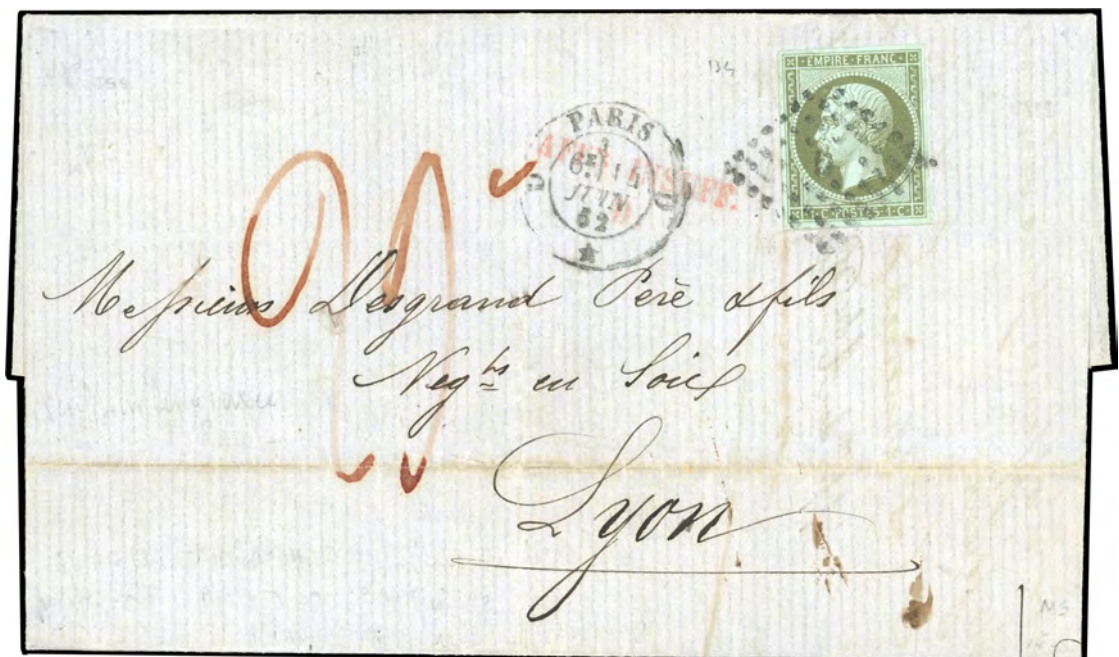 134
EMPIRE · FRANC ·
1 · C · POSTES · 1 · C ·
PARIS
AFFR. INSUFF.
6E
JUIN
62
D D
Messieurs Desgrand Père & fils
Negts en Soies
Lyon
MS